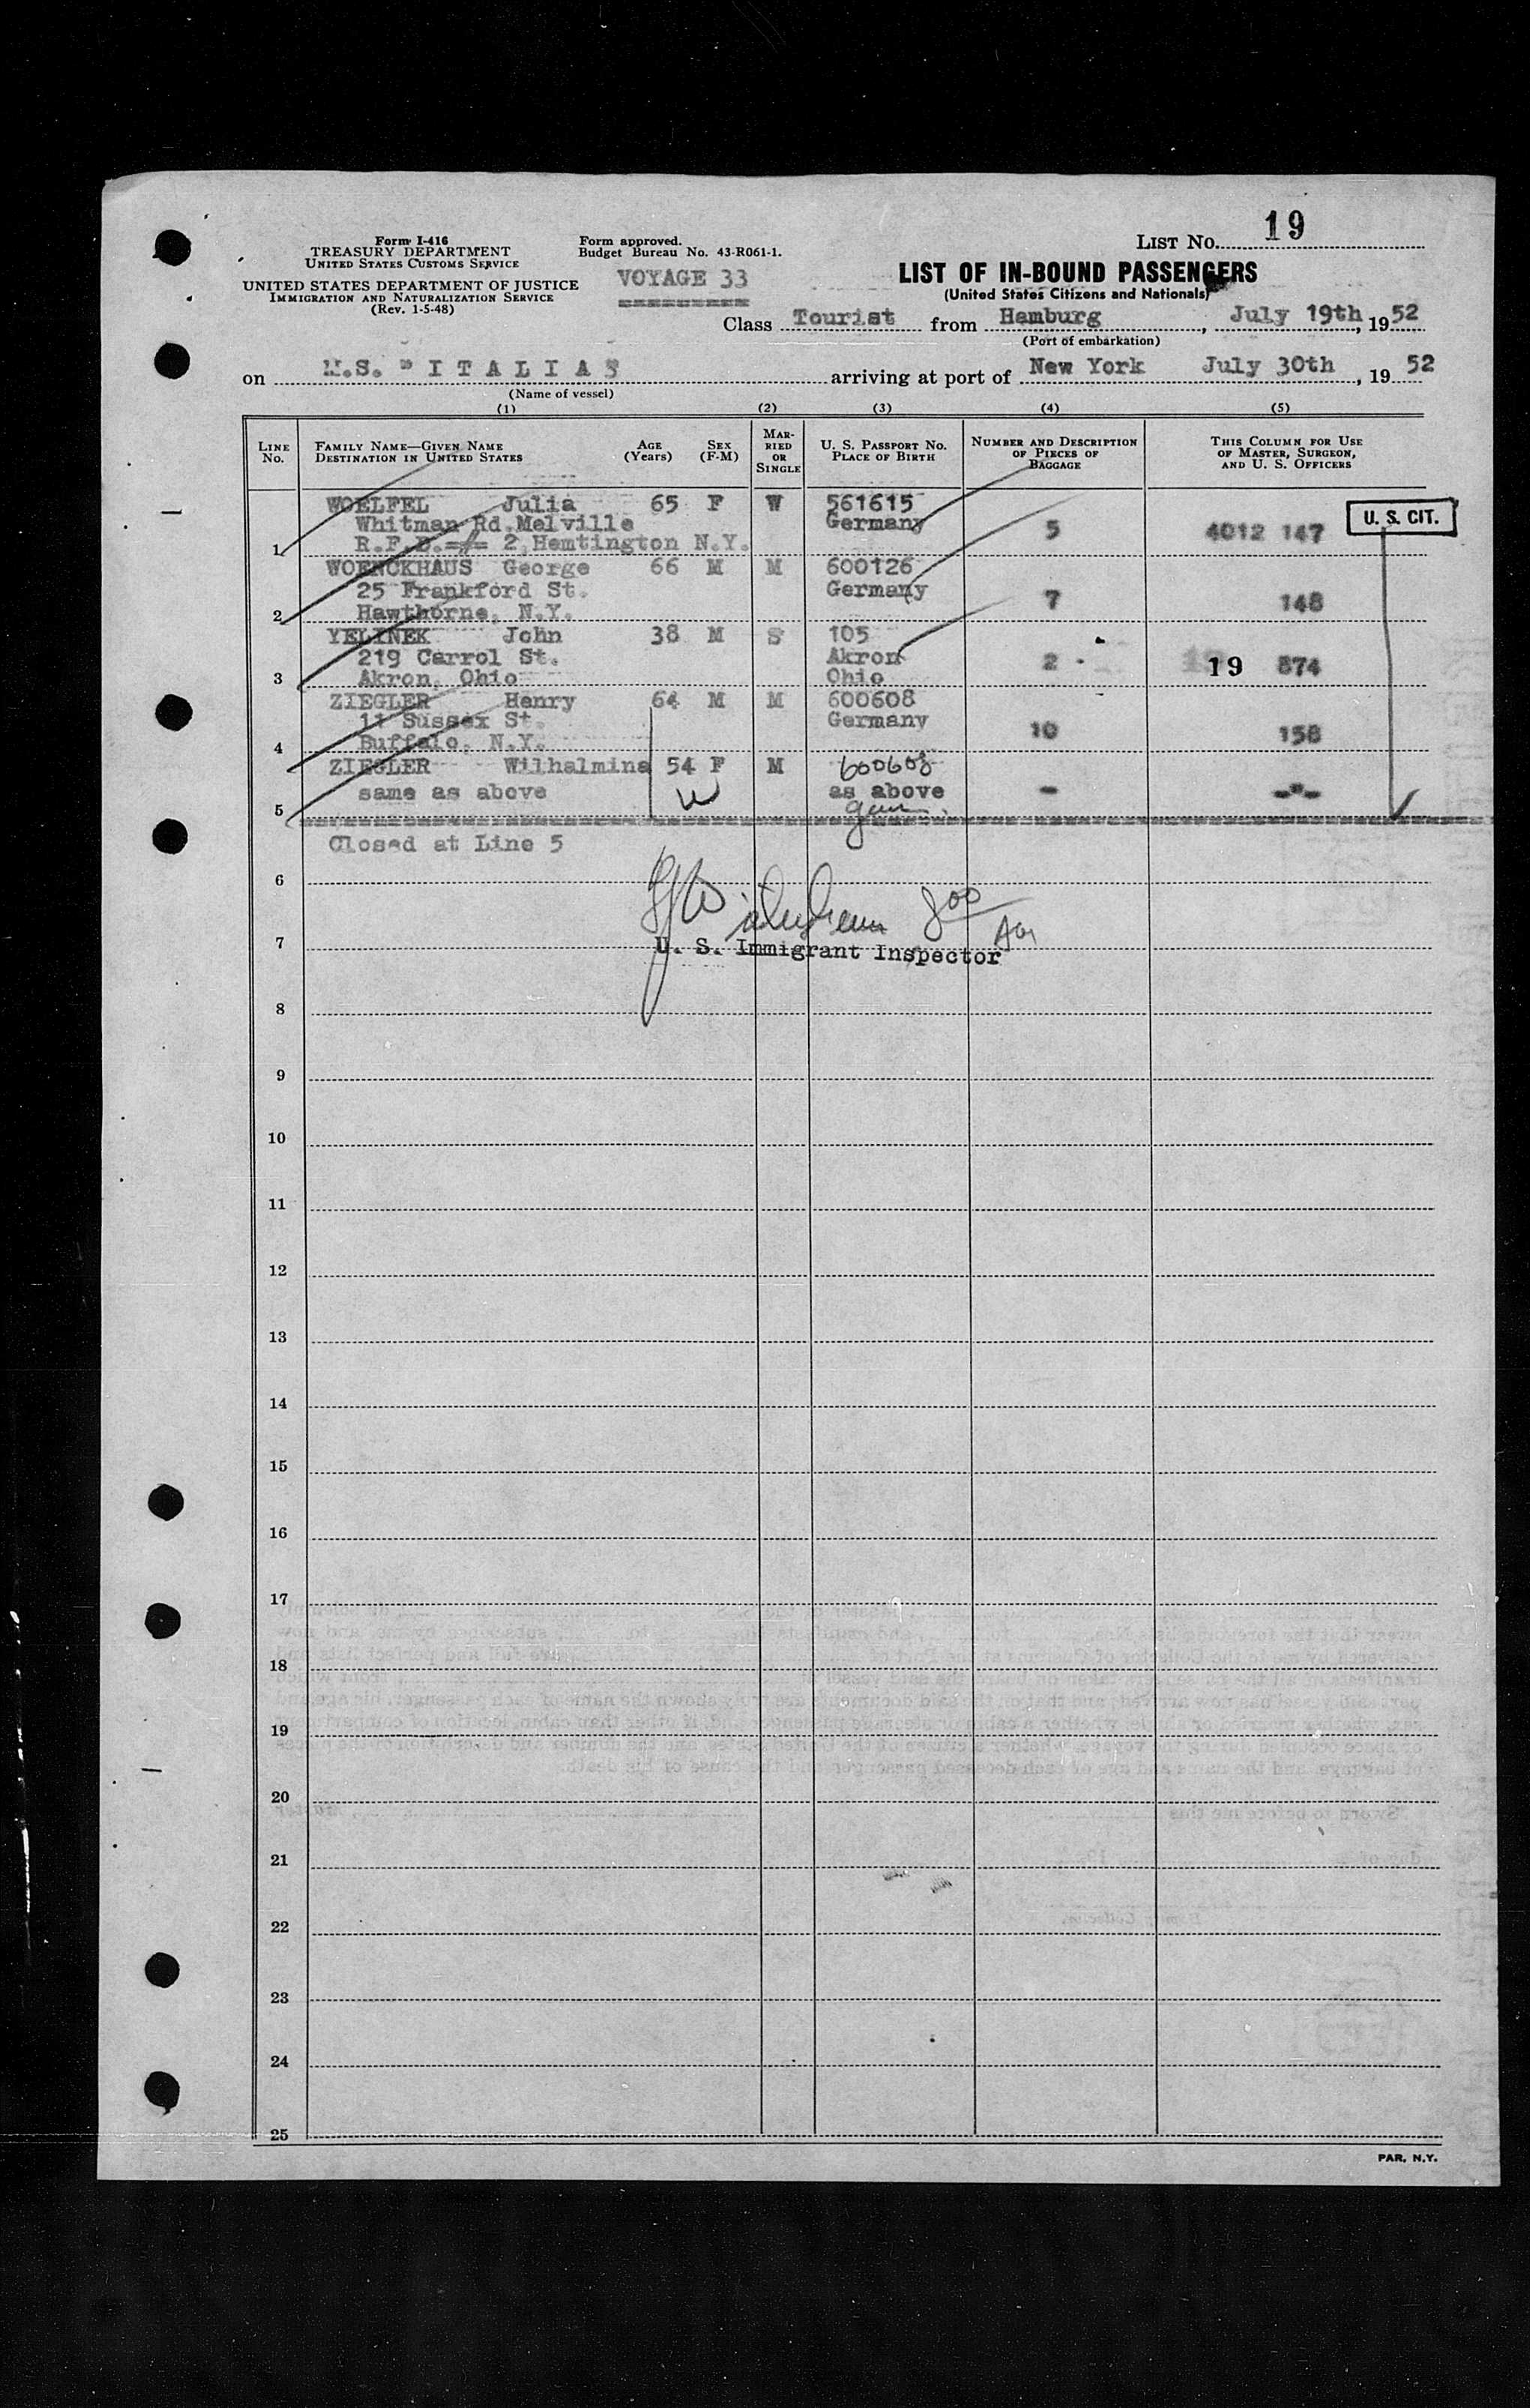 LIST NO. 19
Form I-416
TREASURY DEPARTMENT
UNITED STATES CUSTOMS SERVICE
UNITED STATES DEPARTMENT OF JUSTICE
IMMIGRATION AND NATURALIZATION SERVICE
(Rev. 1-5-48)
Form approved.
Budget Bureau No. 43-R061-1.
VOYAGE 33
LIST OF IN-BOUND PASSENGERS
(United States Citizens and Nationals)
Class Tourist from Hamburg, July 19th, 1952
(Port of embarkation)
on M.S. "ITALIA" arriving at port of New York July 30th, 1952
(Name of vessel)
(1) (2) (3) (4) (5)
LINE NO.
FAMILY NAME—GIVEN NAME
DESTINATION IN UNITED STATES
AGE (Years)
SEX (F-M)
MARRIED OR SINGLE
U. S. PASSPORT NO.
PLACE OF BIRTH
NUMBER AND DESCRIPTION OF PIECES OF BAGGAGE
THIS COLUMN FOR USE OF MASTER, SURGEON, AND U. S. OFFICERS
WOELFEL Julia 65 F W 561615
Whitman Rd.Melville Germany 5 4012 147 U. S. CIT.
1 R.F.D. 2,Hemtington N.Y.
WOENCKHAUS George 66 M M 600126
25 Frankford St. Germany 7 148
2 Hawthorne, N.Y.
YELINEK John 38 M S 105
219 Carrol St. Akron 2 19 874
3 Akron, Ohio Ohio
ZIEGLER Henry 64 M M 600608
11 Sussex St. Germany 10 158
4 Buffalo, N.Y.
ZIEGLER Wilhalmina 54 F M 600608
same as above W as above - -"-
5 Ger.
Closed at Line 5
6
7 U. S. Immigrant Inspector
8
9
10
11
12
13
14
15
16
17
18
19
20
21
22
23
24
25
PAR. N.Y.